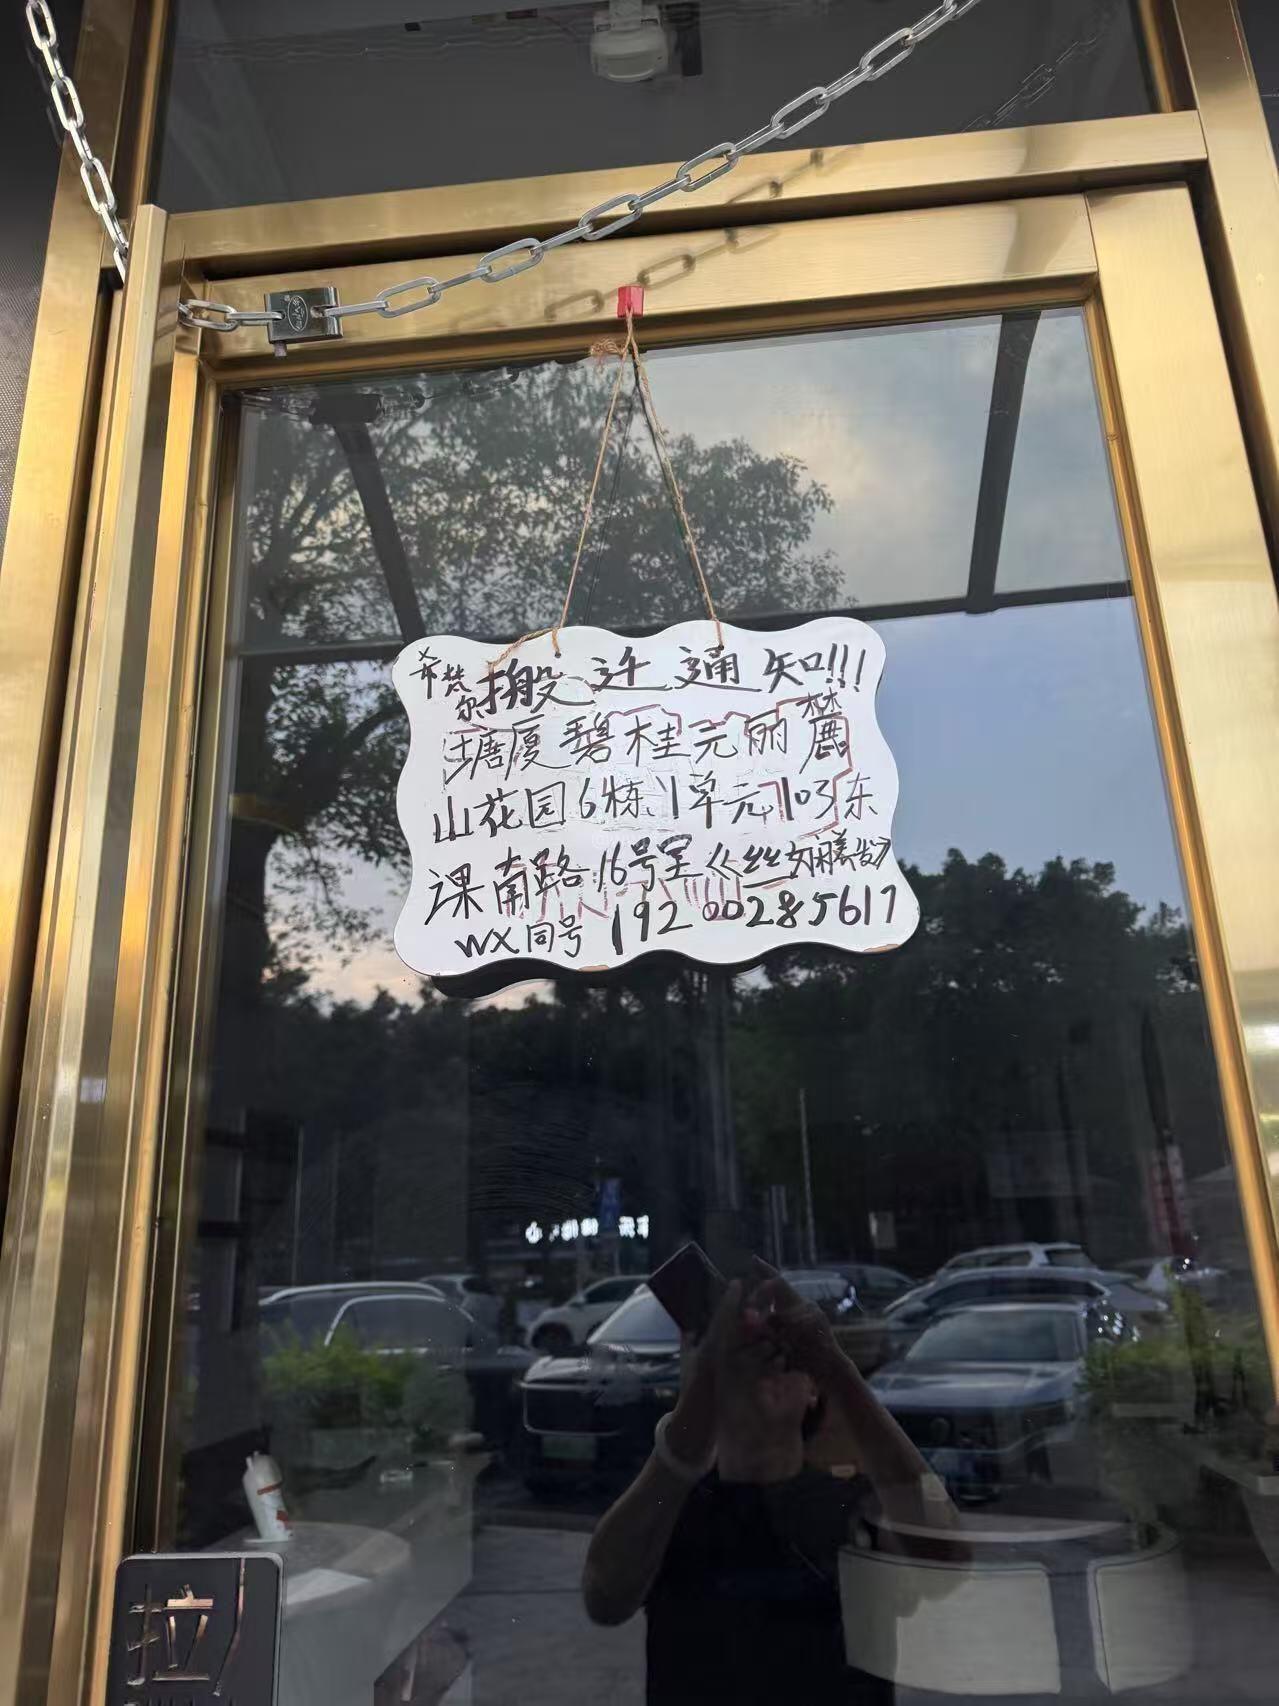 希梵尔搬迁通知!!!
塘厦碧桂元丽麓
山花园6栋1单元103东
课南路16号里《丝域养发》
WX同号 19200285617
拉